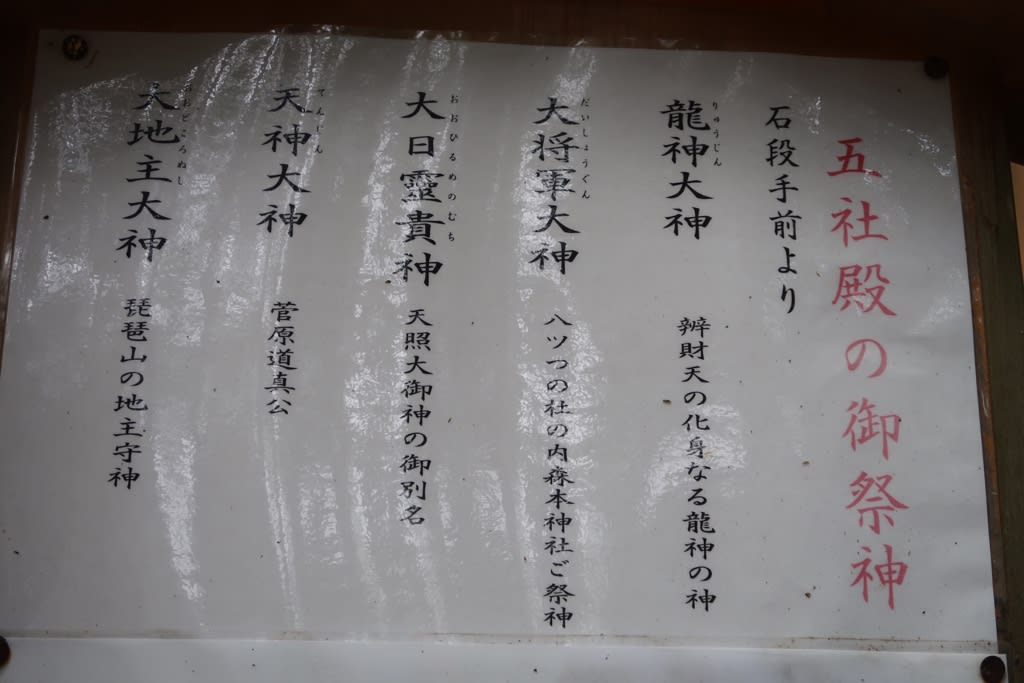 五社殿の御祭神
石段手前より
龍神大神 辨財天の化身なる龍神の神
りゅうじん
大将軍大神 八ツつの社の内森本神社ご祭神
だいしょうぐん
大日靈貴神 天照大御神の御別名
おおひるめのむち
天神大神 菅原道真公
てんじん
大地主大神 琵琶山の地主守神
おおどころぬし